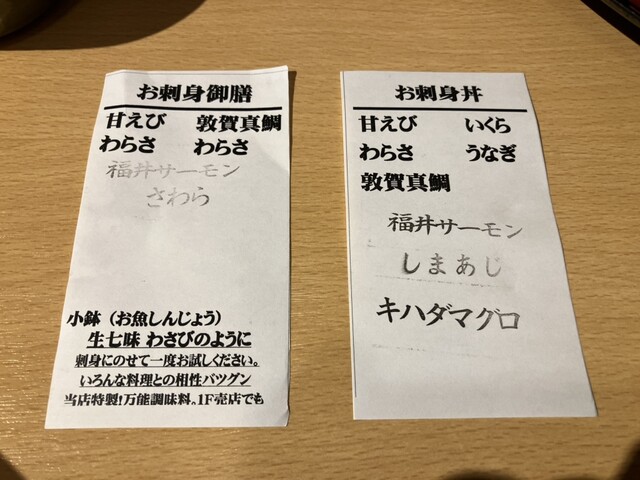 お刺身御膳
甘えび 敦賀真鯛
わらさ わらさ
福井サーモン
さわら
小鉢（お魚しんじょう）
生七味 わさびのように
刺身にのせて一度お試しください。
いろんな料理との相性バツグン
当店特製!万能調味料。1F売店でも
お刺身丼
甘えび いくら
わらさ うなぎ
敦賀真鯛
福井サーモン
しまあじ
キハダマグロ